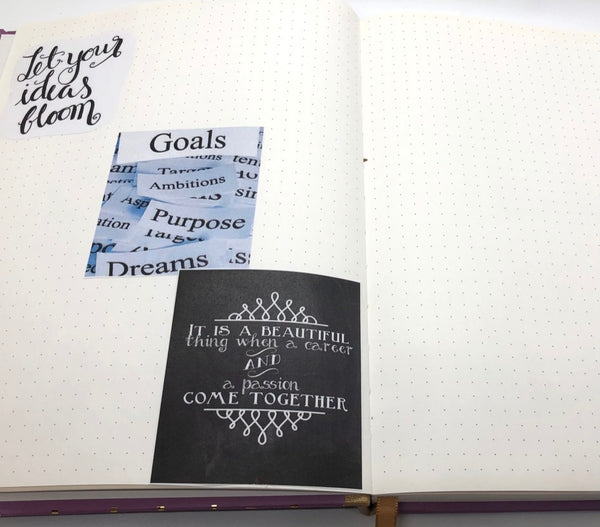 Let your
ideas
bloom
Goals
Target
Ambitions
Purpose
Target
Dreams
IT IS A BEAUTIFUL
thing when a career
AND
a passion
COME TOGETHER